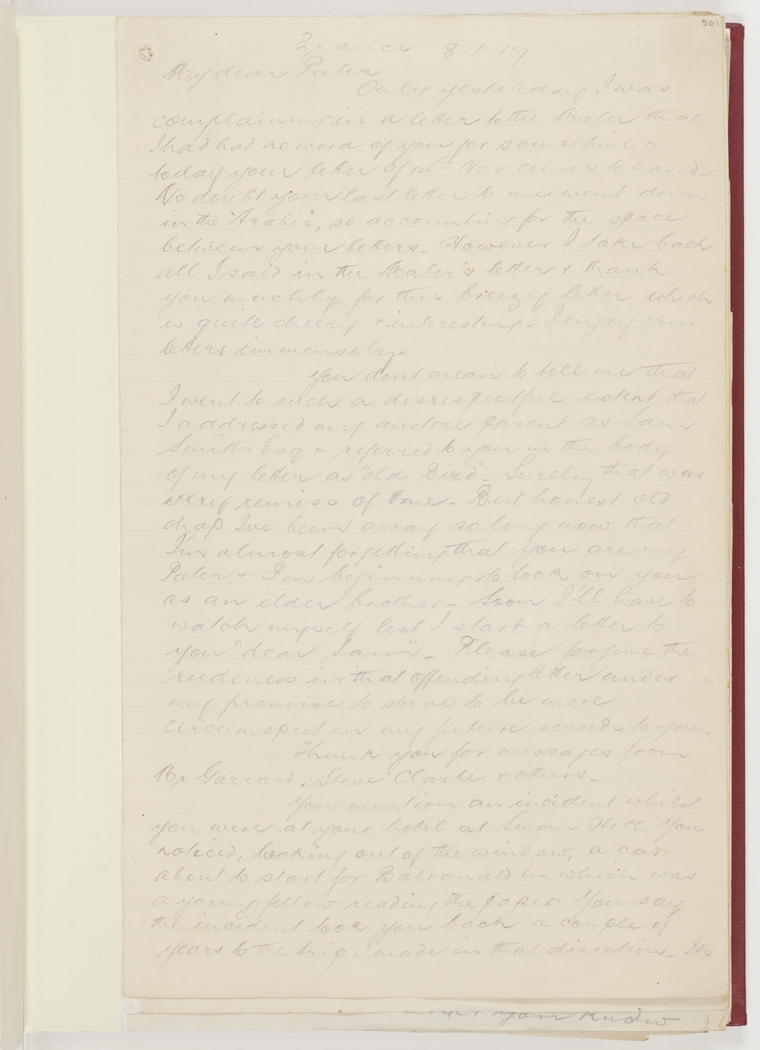 501
France 8-1-17
My dear Pater
Only yesterday I was
complaining in a letter to the Mater that
I had had no word of you for some time &
today your letter of 14th Nov comes to hand.
No doubt your last letter to me went down
in the "Arabia", so accounting for the space
between your letters. However I take back
all I said in the Mater's letter & thank
you muchly for this breezy letter which
is quite cheery & interesting. I enjoy your
letters immensely.
You dont mean to tell me that
I went to such a disrespectful extent that
I addressed my austere parent as Sam
Smith Esq & referred to you in the body
of my letter as "old Bird". Surely that was
very remiss of me. But honest old
chap Ive been away so long now that
I'm almost forgetting that you are my
Pater & I'm beginning to look on you
as an elder brother. Soon I'll have to
watch myself lest I start a letter to
you "dear Sam". Please forgive the
rudeness in that offending letter under
my promise to strive to be more
circumspect in my future screeds to you.
Thank you for messages from
Mr Garrard, Steve Clarke & others.
You mention an incident whilst
you were at your hotel at Swan Hill. You
noticed, looking out of the window, a car
about to start for Balranald in which was
a young fellow reading the paper. You say
the incident took you back a couple of
years to the trip I made in that direction. Its
you know